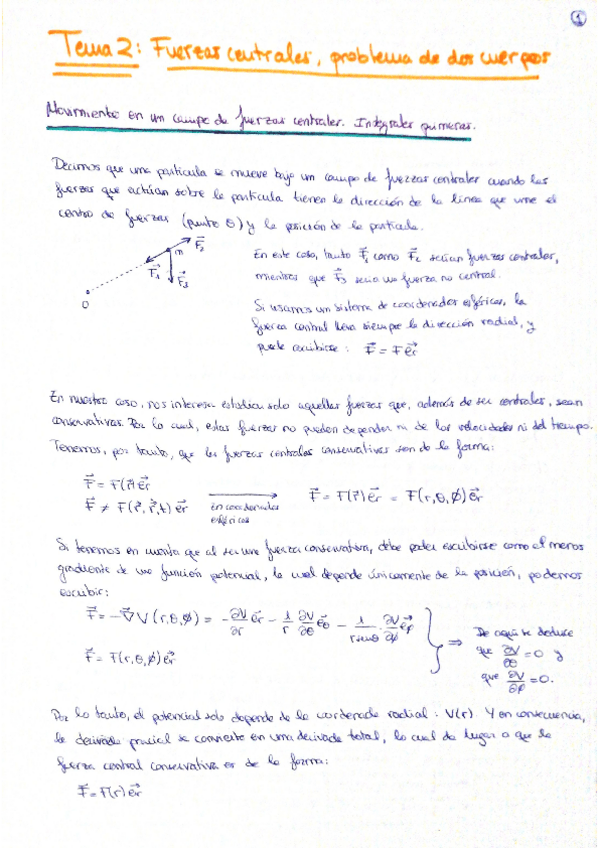 1
Tema 2: Fuerzas centrales, problema de dos cuerpos
Movimiento en un campo de fuerzas centrales. Integrales primeras.
Decimos que una partícula se mueve bajo un campo de fuerzas centrales cuando las
fuerzas que actúan sobre la partícula tienen la dirección de la línea que une el
centro de fuerzas (punto O) y la posición de la partícula.
m F⃗₂
F⃗₁ F⃗₃
O
En este caso, tanto F⃗₁ como F⃗₂ serían fuerzas centrales,
mientras que F⃗₃ sería una fuerza no central.
Si usamos un sistema de coordenadas esféricas, la
fuerza central lleva siempre la dirección radial, y
puede escribirse: F⃗ = F e⃗r
En nuestro caso, nos interesa estudiar solo aquellas fuerzas que, además de ser centrales, sean
conservativas. Por lo cual, estas fuerzas no pueden depender ni de las velocidades ni del tiempo.
Tenemos, por tanto, que las fuerzas centrales conservativas son de la forma:
F⃗ = F(r⃗) e⃗r
F⃗ ≠ F(r⃗, ṙ⃗, t) e⃗r
en coordenadas
esféricas
F⃗ = F(r⃗) e⃗r = F(r, θ, φ) e⃗r
Si tenemos en cuenta que al ser una fuerza conservativa, debe poder escribirse como el menos
gradiente de una función potencial, la cual depende únicamente de la posición, podemos
escribir:
F⃗ = -∇⃗V(r, θ, φ) = -∂V/∂r e⃗r - 1/r ∂V/∂θ e⃗θ - 1/(r senθ) · ∂V/∂φ e⃗φ
F⃗ = F(r, θ, φ) e⃗r
⇒ De aquí se deduce
que ∂V/∂θ = 0 y
que ∂V/∂φ = 0.
Por lo tanto, el potencial solo depende de la coordenada radial: V(r). Y en consecuencia,
la derivada parcial se convierte en una derivada total, lo cual da lugar a que la
fuerza central conservativa es de la forma:
F⃗ = F(r) e⃗r